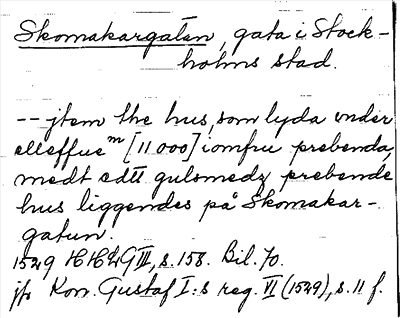 Skomakargatan, gata i Stock-
holms stad.
-- jtem the hus, som lyda under
elleffue m [11 000] iomfru prebenda,
medt edtt gulsmedz prebende
hus liggendes på Skomakar-
gatun.
1529 HHLG III, s. 158. Bil. 70.
jfr Kon. Gustaf I:s reg. VI (1529), s. 11 f.